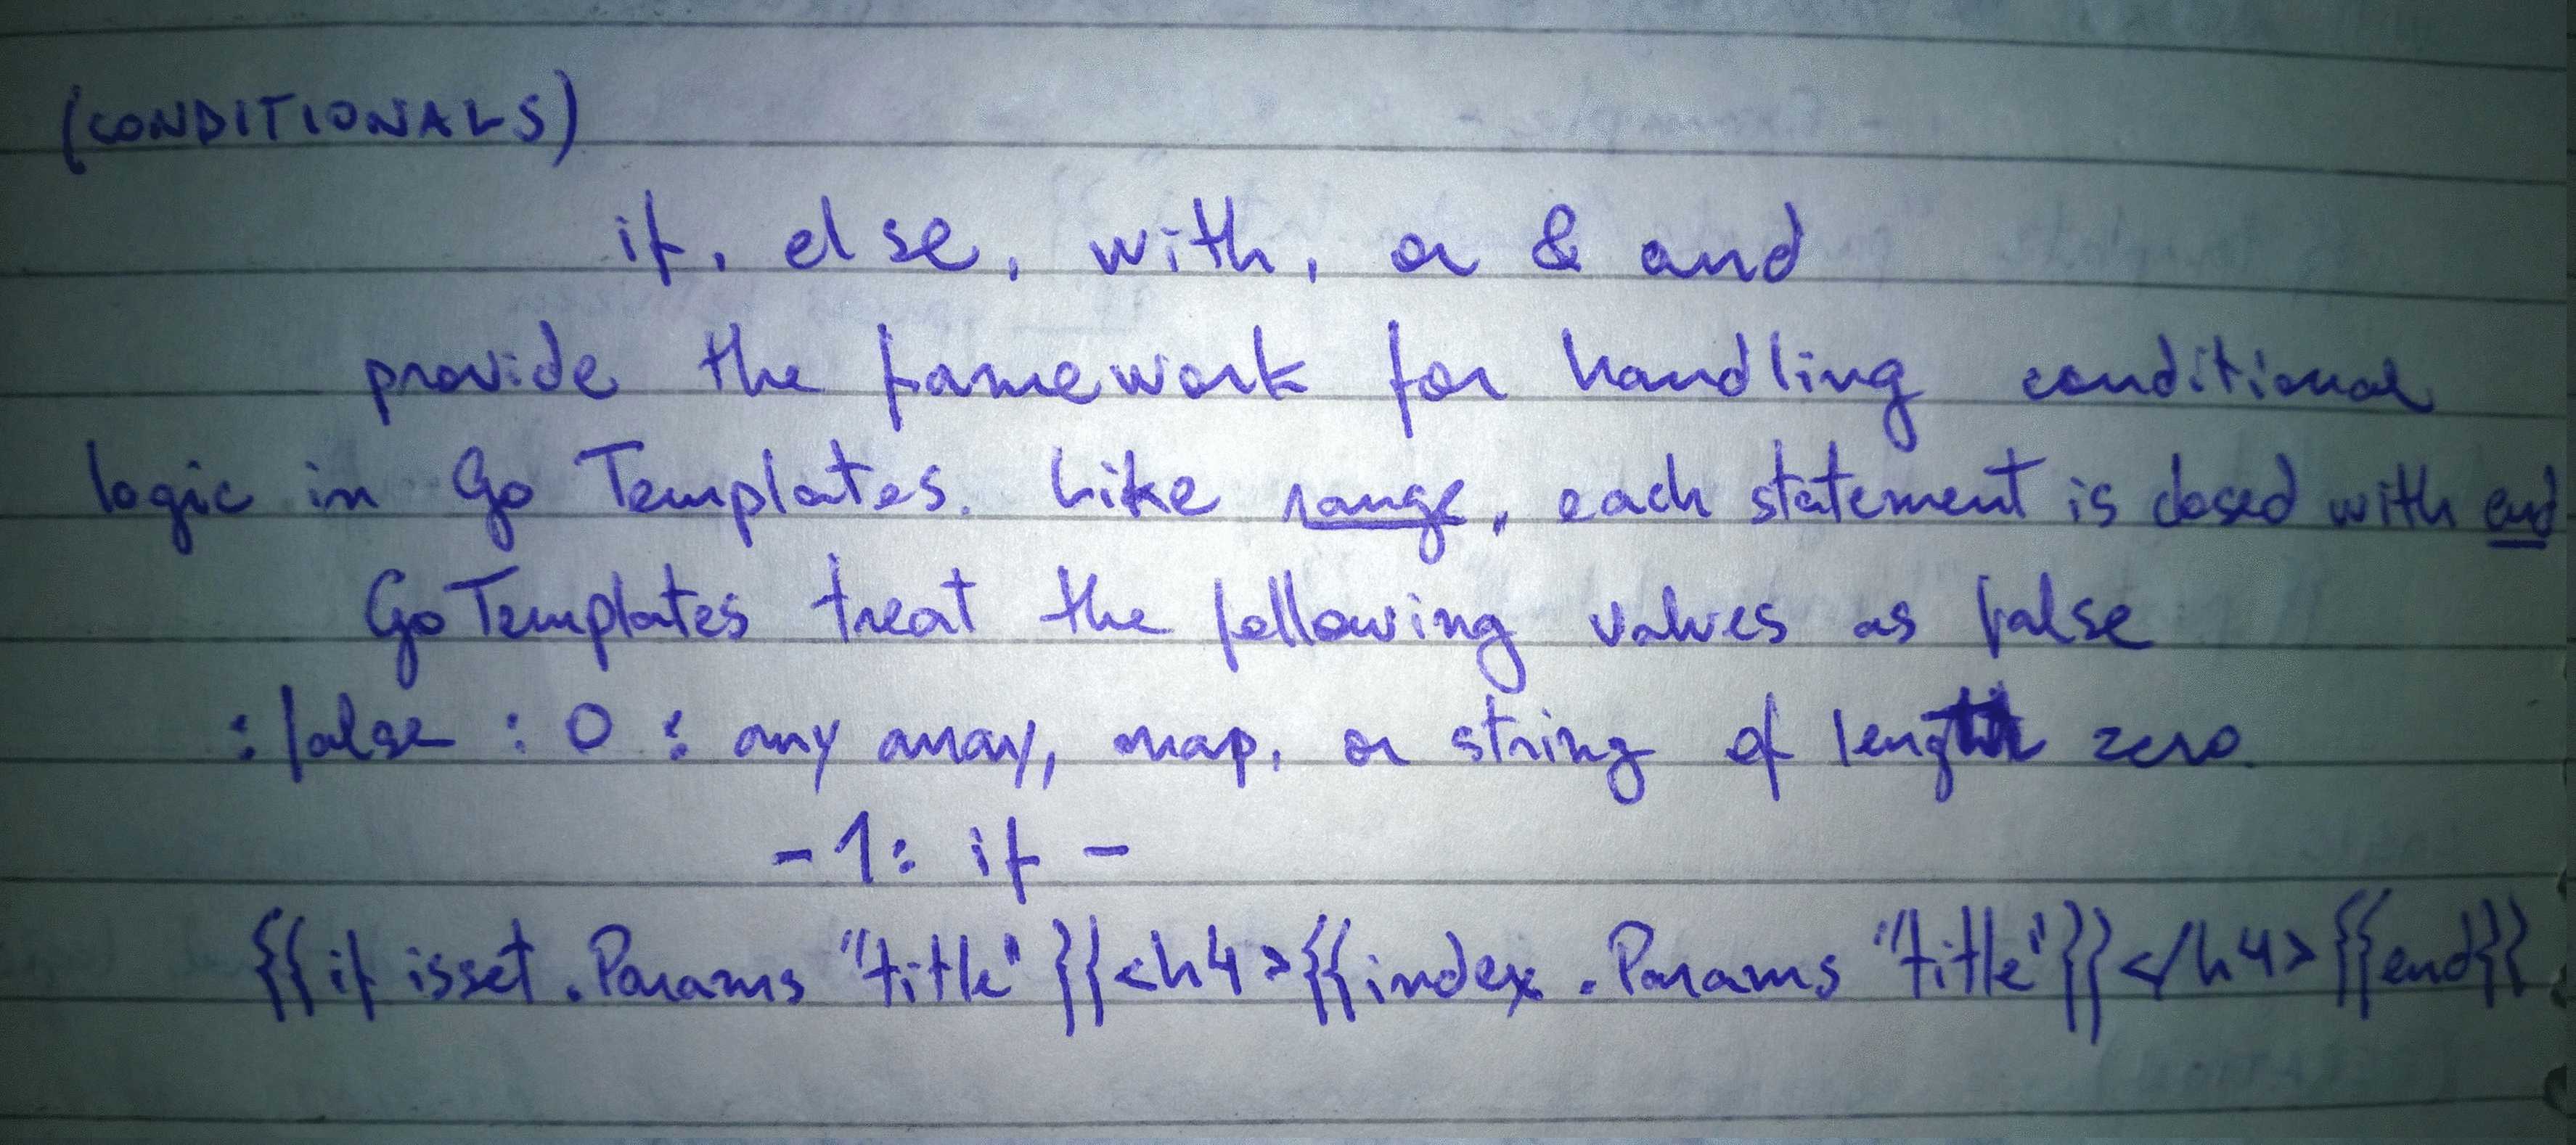 (CONDITIONALS)
if, else, with, or & and
provide the framework for handling conditional
logic in Go Templates. Like range, each statement is closed with end
Go Templates treat the following values as false
: false : 0 : any array, map, or string of length zero
- 1: if -
{{if isset .Params "title" }}<h4>{{index .Params "title"}}</h4>{{end}}